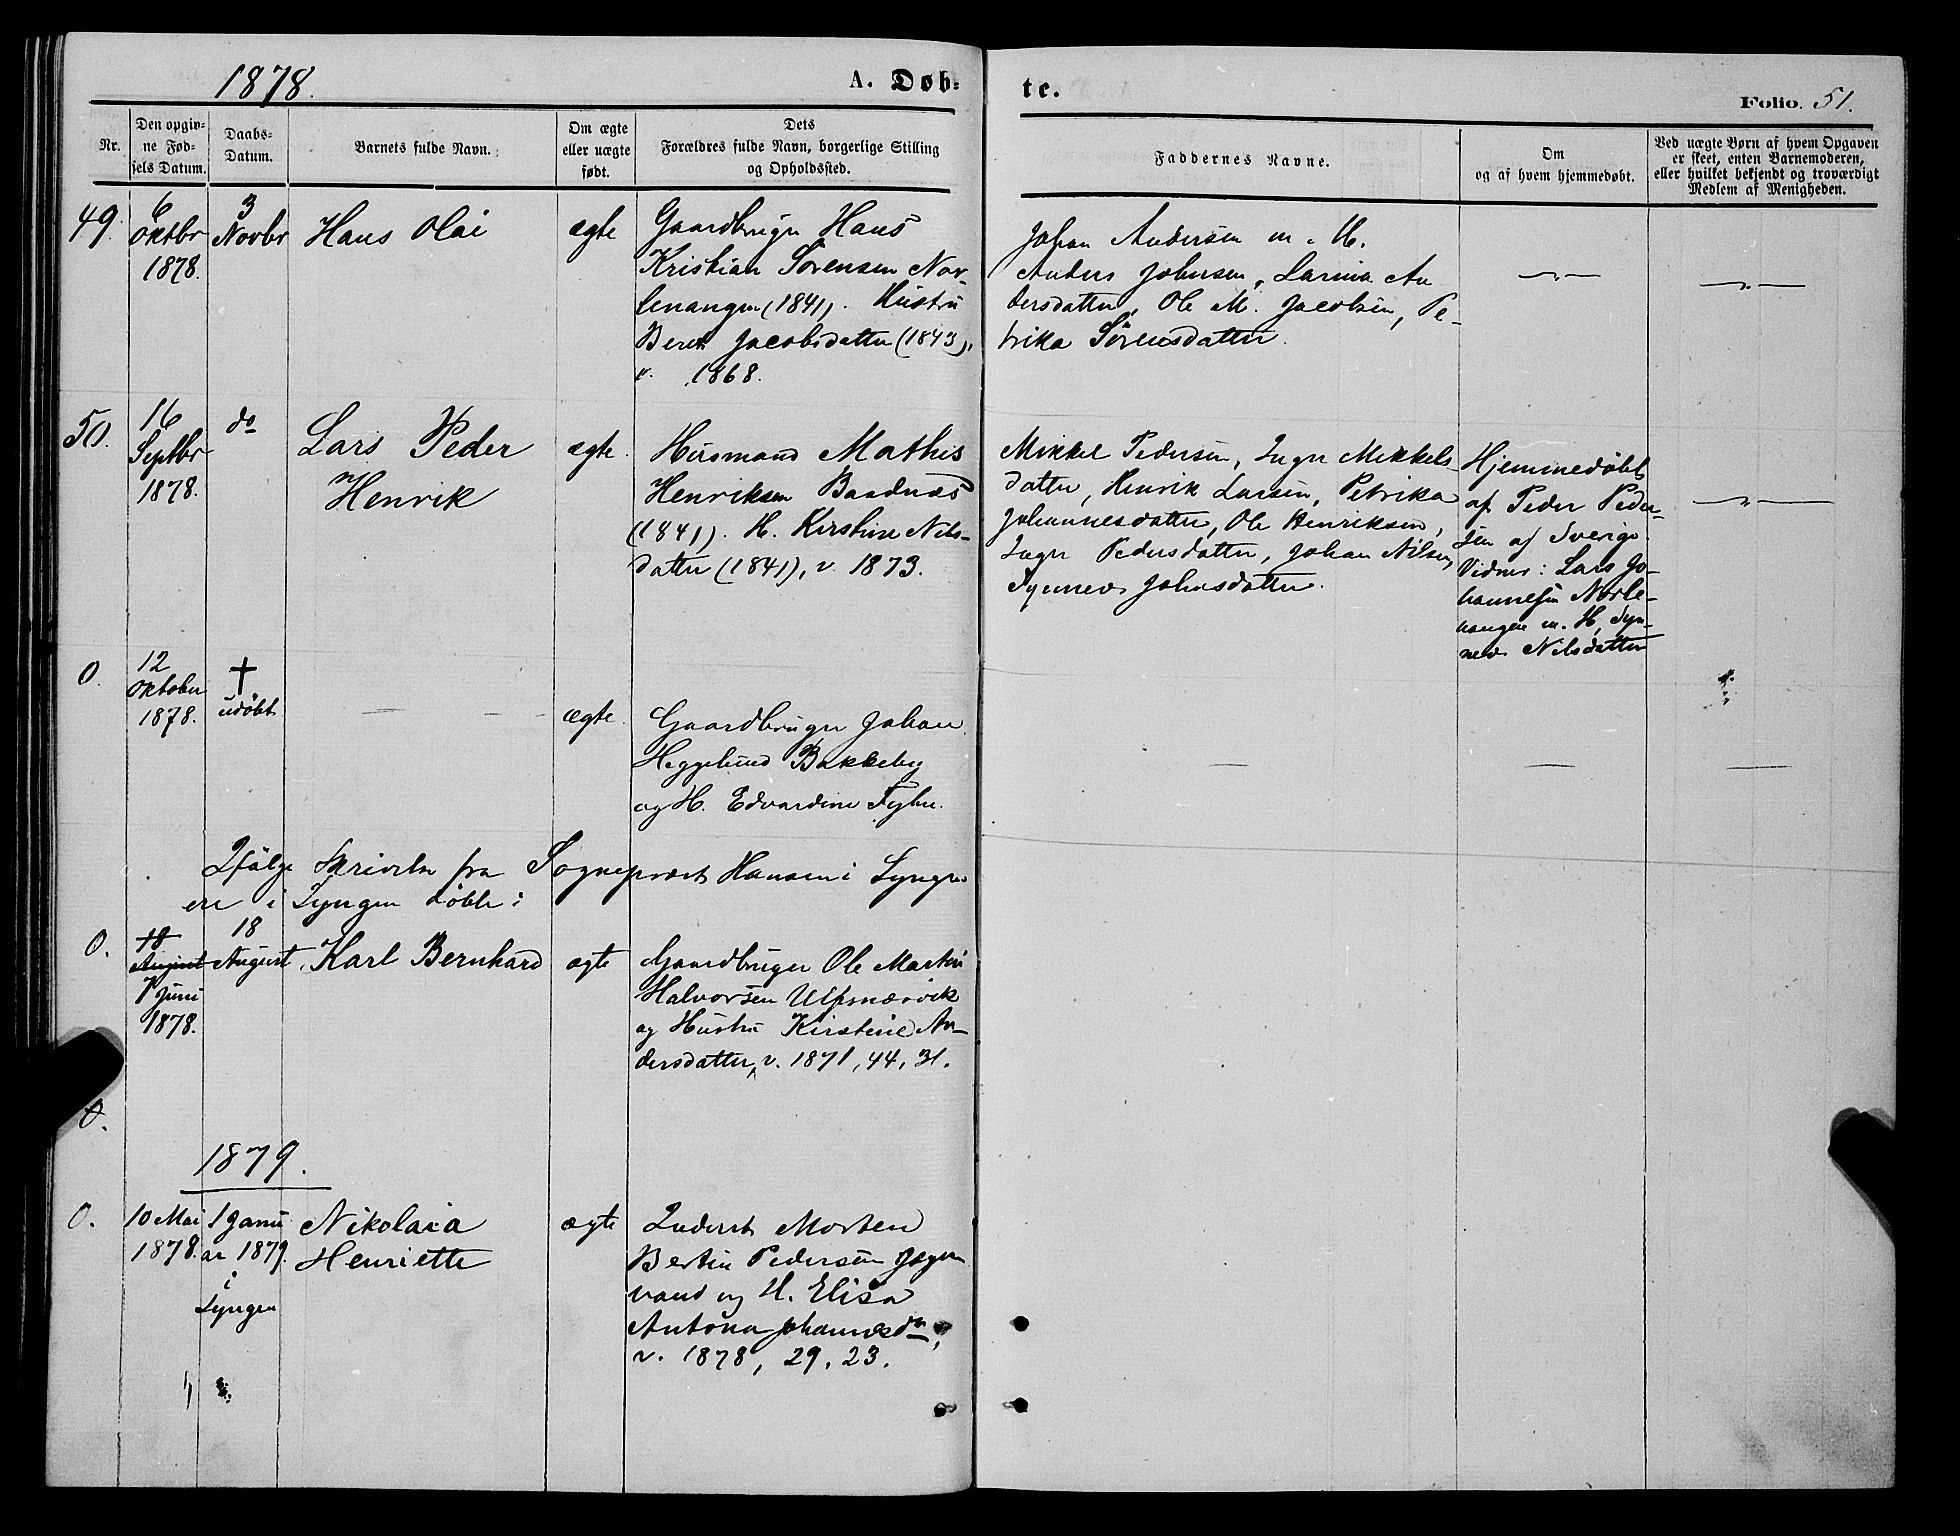 1878.
A. Døb=
te.
Folio. 51.
Nr.
Den opgiv=
ne Fød=
sels Datum.
Daabs=
Datum.
Barnets fulde Navn.
Om ægte
eller uægte
født.
Dets
Forældres fulde Navn, borgerlige Stilling
og Opholdssted.
Faddernes Navne.
Om
og af hvem hjemmedøbt.
Ved uægte Børn af hvem Opgaven
er skeet, enten Barnemoderen,
eller hvilket bekjendt og troværdigt
Medlem af Menigheden.
49.
6
Oktbr
1878.
3
Novbr
Hans Olai
ægte
Gaardbruger Hans
Kristian Sörensen Nor-
lenangen (1841). Hustru
Beret Jacobsdatter (1843),
v. 1868.
Johan Andersen m. H.
Anders Johnsen, Larina An
dersdatter, Ole M. Jacobsen, Pe-
trika Sörensdatter.
50.
16
Septbr
1878.
do
Lars Peder
Henrik
ægte.
Husmand Mathis
Henriksen Baadnæs
(1841). H. Kirstine Nils-
datter (1841), v. 1873.
Mikkel Pedersen, Inger Mikkels
datter, Henrik Larsen, Petrika
Johannesdatter, Ole Henriksen,
Inger Pedersdatter, Johan Nilsen,
Synnev Johnsdatter.
Hjemmedöbt
af Peder Peder-
sen af Sverige
Vidner: Lars Jo-
hannesen Norle-
nangen m. H. Syn-
nev Nilsdatter
0.
12
Oktober
1878.
†
udöbt
ægte.
Gaardbruger Johan
Heggelund Bakkeby
og H. Edvardine Fyhn.
Ifölge Skrivelse fra Sogneprest Hansen i Lyngen
ere i Lyngen döbte:
0.
18
August
7 Juni
1878.
18
August
Karl Bernhard
ægte
Gaardbruger Ole Martin
Halvorsen Ulfsnæsvik
og Hustru Kirstine An-
dersdatter, v. 1871, 44, 31.
0.
1879.
0.
10 Mai
1878.
1 Janu
ar 1879.
i
Lyngen
Nikolaia
Henriette
ægte
Inderst Morten
Bertin Pedersen Jæger
vand og H. Elisa
Antona Johannesdr,
v. 1878, 29, 23.